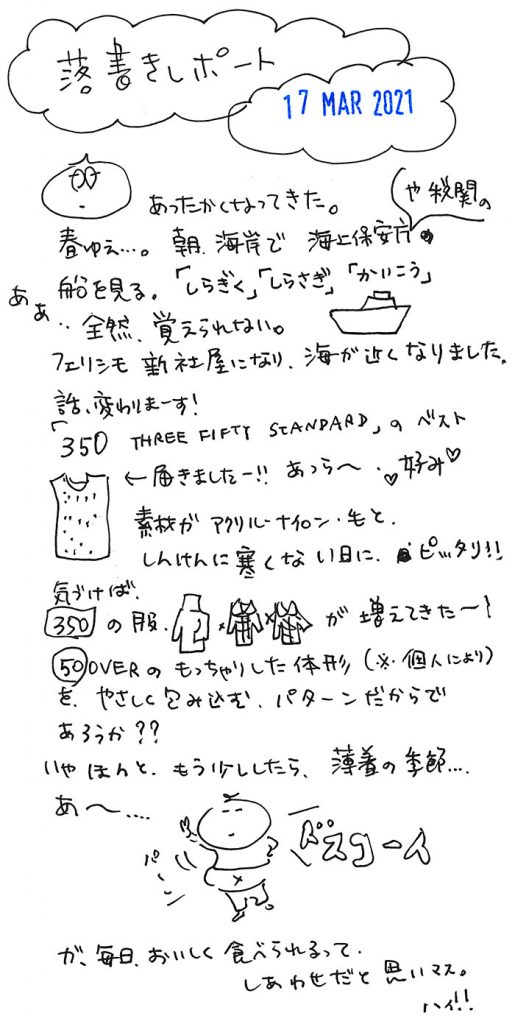 落書きレポート
17 MAR 2021
あったかくなってきた。
や税関の
春ゆえ…。朝、海岸で 海上保安庁の
船を見る。「しらぎく」「しらさぎ」「かいこう」
あぁ‥全然、覚えられない。
フェリシモ 新社屋になり、海が近くなりました。
話、変わりまーす!
「350 THREE FIFTY STANDARD」の ベスト
←届きましたー!! あっら〜、♡好み♡
素材が アクリル・ナイロン・毛と、
しんけんに寒くない日に、ピッタリ!!
気づけば、
350 の服、が 増えてきた〜!
50 OVERの もっちゃりした 体形(※個人により)
を、やさしく包み込む、パターンだからで
あろうか??
いやほんと、もう少ししたら、薄着の季節…
あ〜‥‥
パーン
ドスコーイ
が、毎日、おいしく 食べられるって、
しあわせだと 思いマス。
ハイ!!